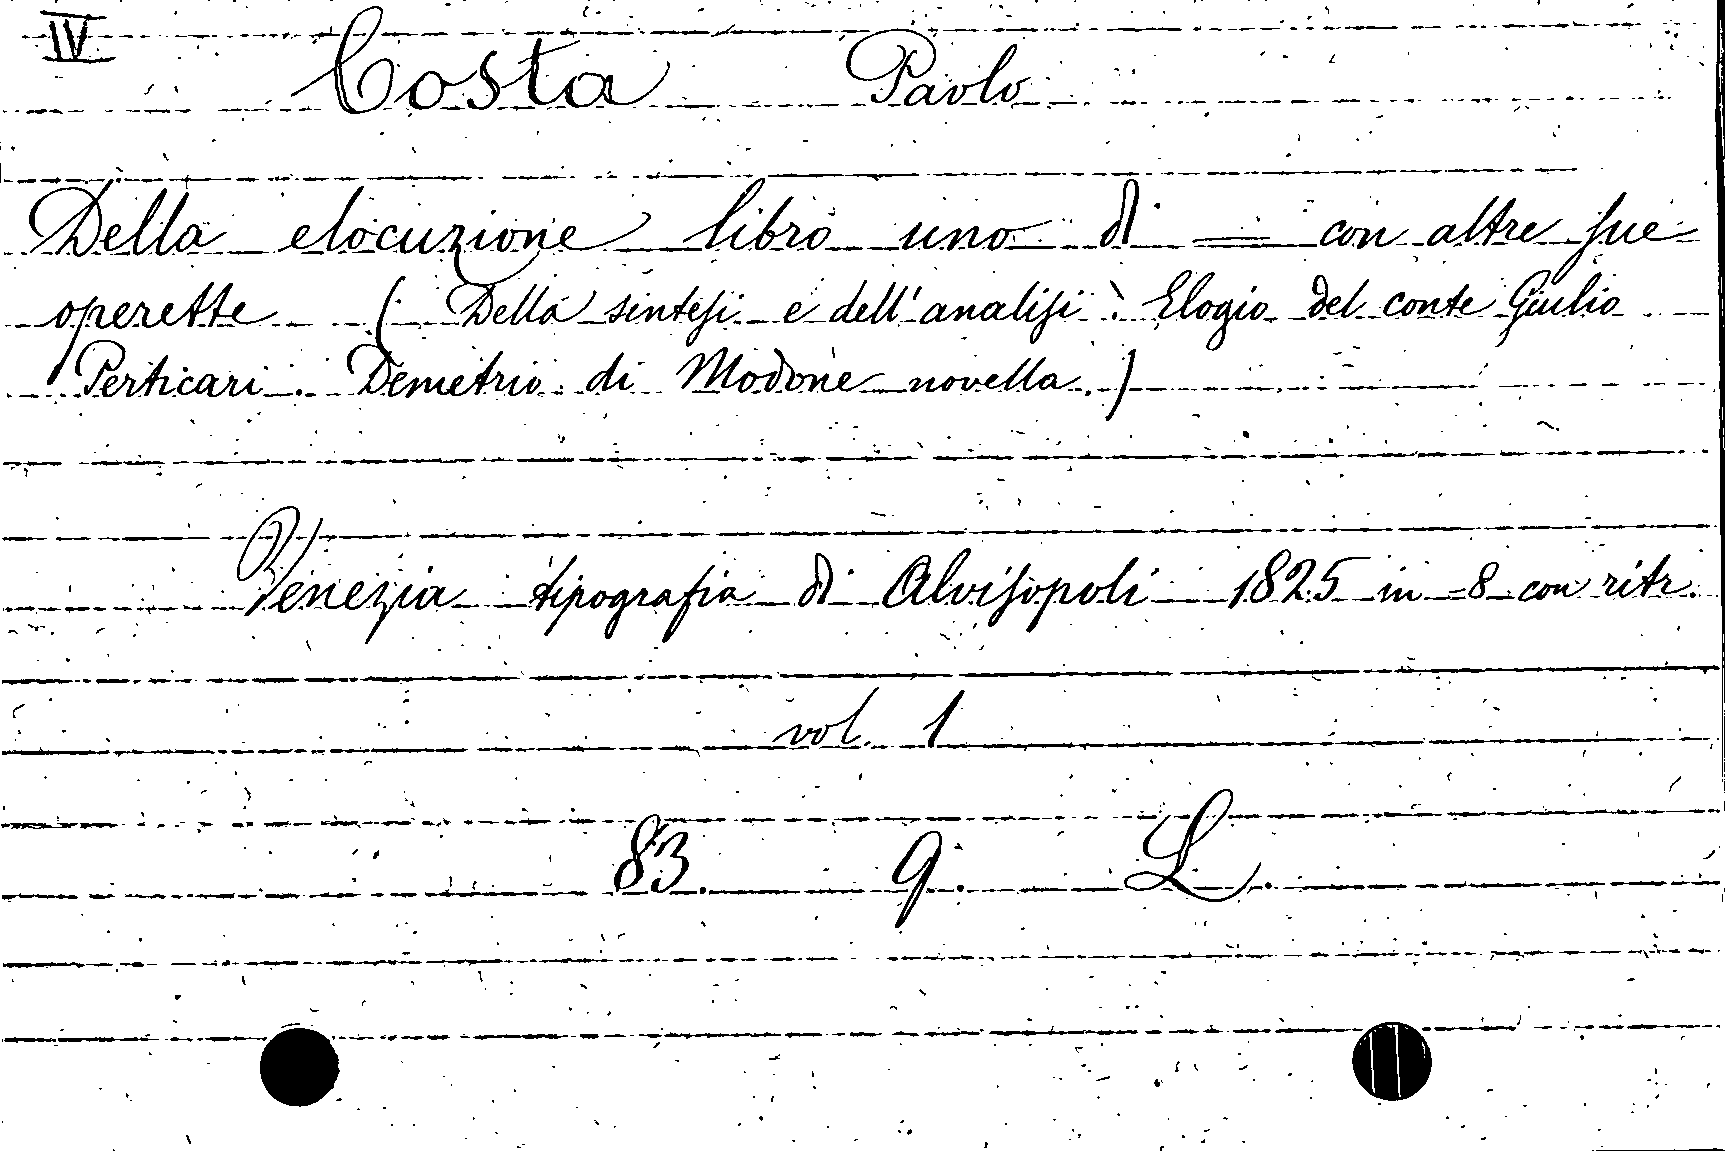 IV
Costa Paolo
Della elocuzione libro uno di — con altre sue
operette (Della sintesi e dell'analisi. Elogio del conte Giulio
Perticari. Demetrio di Modone novella.)
Venezia tipografia di Alvisopoli 1825 in 8 con ritr.
vol. 1
83. 9. L.